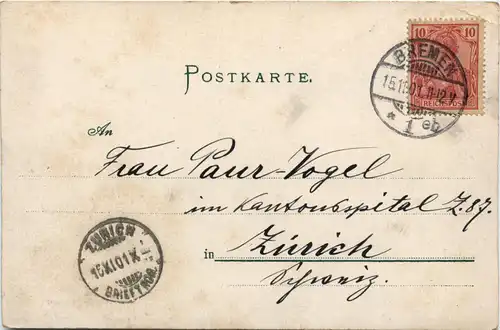 10 10
BREMEN
15.11.01. 11-12 V
REICHSPOST
* 1 eb
POSTKARTE.
An
Frau Paur-Vogel
im Kantonsspital Z. 87.
in Zürich
Schweiz.
ZÜRICH
16.XI.01.X
BRIEFTRÄG.